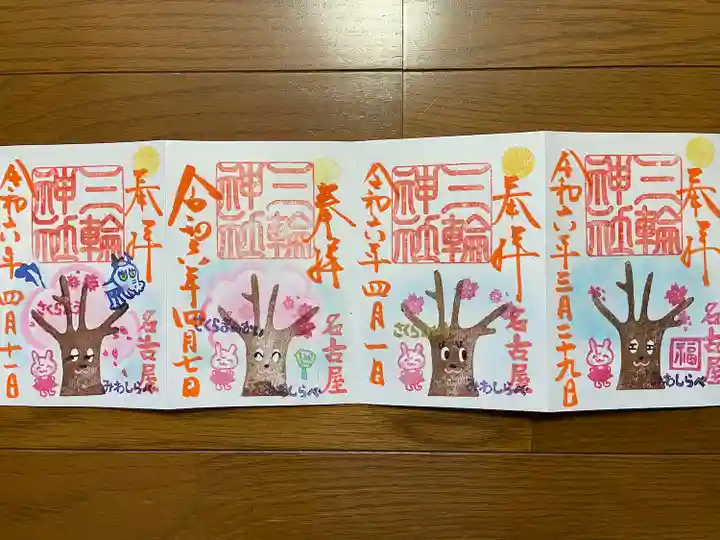 奉拝
三輪
神社
名古屋
福
みわしらべ
令和六年三月二十九日
奉拝
三輪
神社
名古屋
みわしらべ
令和六年四月一日
奉拝
三輪
神社
名古屋
みわしらべ
令和六年四月七日
奉拝
三輪
神社
名古屋
みわしらべ
令和六年四月十一日